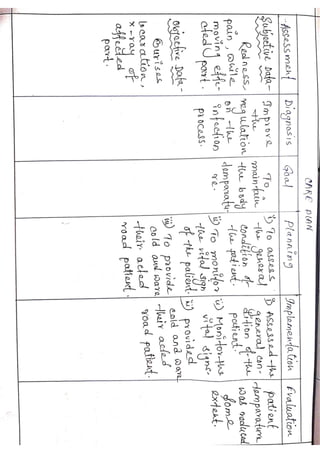 CARE PLAN
Assessment
Diagnosis
Goal
Planning
Implementation
Evaluation
Subjective Data-
Redness,
pain, while
moving effe-
cted part.
Objective Data-
Burises
location,
x-ray of
affected
part.
Improve
the
regulation
on the
infection
process.
To
maintain
the body
temperatu-
re.
i) To assess
the general
condition of
the patient.
ii) To monitor
the vital sign
of the patient.
iii) To provide
cold and ware
their acted
road patient.
i) Assessed the
general con-
dition of the
patient.
ii) Monitor the
vital signs.
iii) provided
cold and ware
their acted
road patient.
patient
temparature
was reduced
some
extent.